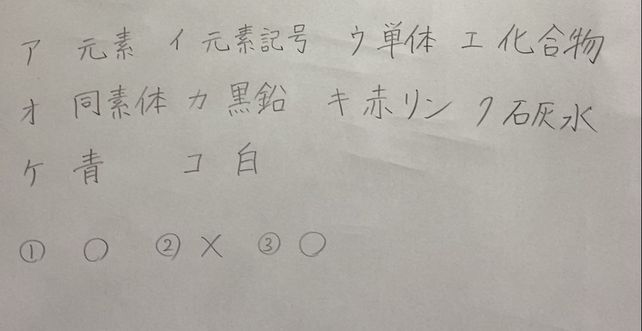 ア 元素 イ 元素記号 ウ 単体 エ 化合物
オ 同素体 カ 黒鉛 キ 赤リン ク 石灰水
ケ 青 コ 白
① ○ ② × ③ ○